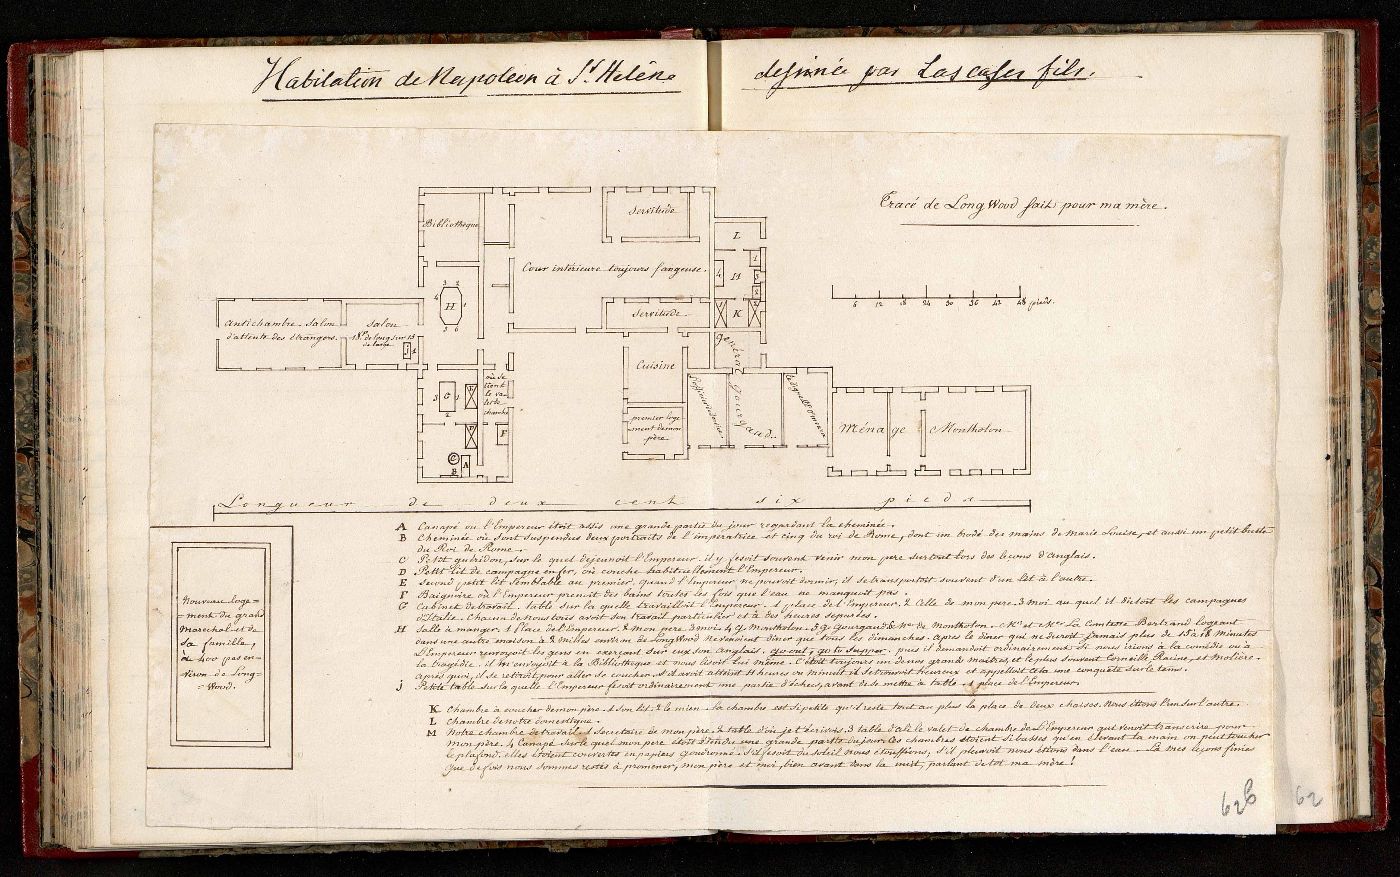 Habitation de Napoléon à St Helène dessinée par Lascases fils.
Tracé de LongWood fait pour ma mère.
Bibliotheque
Servitude
L
Cour intérieure toujours fangeuse.
H
Servitude
K
antichambre. Salon
d'attente des étrangers.
Salon
Cuisine
général gourgaud.
premier loge
ment de mon
père
G
F
C
B
A
Ménage Montholon
6 12 18 24 30 36 42 48 pieds.
Longueur de deux cent six pieds
Nouveau loge=
=ment du grand
Marechal et de
sa famille,
à 400 pas en=
=viron de Long=
=Wood.
A Canapé ou l'Empereur étoit assis une grande partie du jour regardant la cheminée.
B Cheminée où sont suspendus deux portraits de l'imperatrice et cinq du roi de Rome, dont un brodé des mains de Marie Louise, et aussi un petit buste
du Roi de Rome.
C Petit guéridon, sur le quel dejeunoit l'Empereur. il y fesoit souvent venir mon pere surtout lors des leçons d'Anglais.
D Petit lit de campagne en fer, où couche habituellement l'Empereur.
E Second petit lit semblable au premier. quand l'Empereur ne pouvoit dormir, il se transportoit souvent d'un lit à l'autre.
F Baignoire où l'Empereur prenoit des bains toutes les fois que l'eau ne manquoit pas.
G Cabinet de travail. table sur la quelle travailloit l'Empereur. 1 place de l'Empereur, 2 Celle de mon pere. 3 moi au quel il dictoit les campagnes
d'Italie. Chacun de nous tous avoit son travail particulier et à des heures separées.
H Salle à manger. 1 place de l'Empereur. 2 mon pere. 3 moi. 4 gl Montholon. 5 gl Gourgaud. 6 Me de Montholon. Mr et Me La Comtesse Bertrand logeant
dans une autre maison à 2 milles environ de LongWood ne venoient diner que tous les dimanches. apres le diner qui ne duroit jamais plus de 15 à 18 minutes
l'Empereur renvoyoit les gens en exerçant sur eux son anglais. go out, go to supper. puis il demandoit ordinairement si nous irions à la comédie ou à
la tragédie. il m'envoyoit à la Bibliotheque et nous lisoit lui même. c'étoit toujours un de nos grands maîtres, et le plus souvent Corneille Racine, et Moliere.
après quoi, il se retiroit pour aller se coucher. s'il avoit atteint 11 heures ou minuit il se trouvoit heureux et appelloit cela une conquête sur le tems.
J Petite table sur la quelle l'Empereur fesoit ordinairement une partie d'échecs, avant de se mettre à table. 1 place de l'Empereur.
K Chambre à coucher de mon père. 1 son lit. 2 le mien. la chambre est si petite qu'il reste tout au plus la place de deux chaises. Nous étions l'un sur l'autre.
L Chambre de notre domestique.
M Notre chambre de travail. 1 secretaire de mon pere. 2 table d'où je t'écrivois. 3 table d'Ali le valet de chambre de l'Empereur qui venoit transcrire pour
mon père. 4 Canapé sur le quel mon pere étoit étendu une grande partie du jour. les chambres étoient si basses qu'en élevant la main on peut toucher
le plafond. elles étoient couvertes en papiers goudronné. s'il fesoit du soleil nous étouffions, s'il pleuvoit nous étions dans l'eau. la mes leçons finies
que de fois nous sommes restés à promener, mon père et moi, bien avant dans la nuit, parlant de toi ma mère!
62